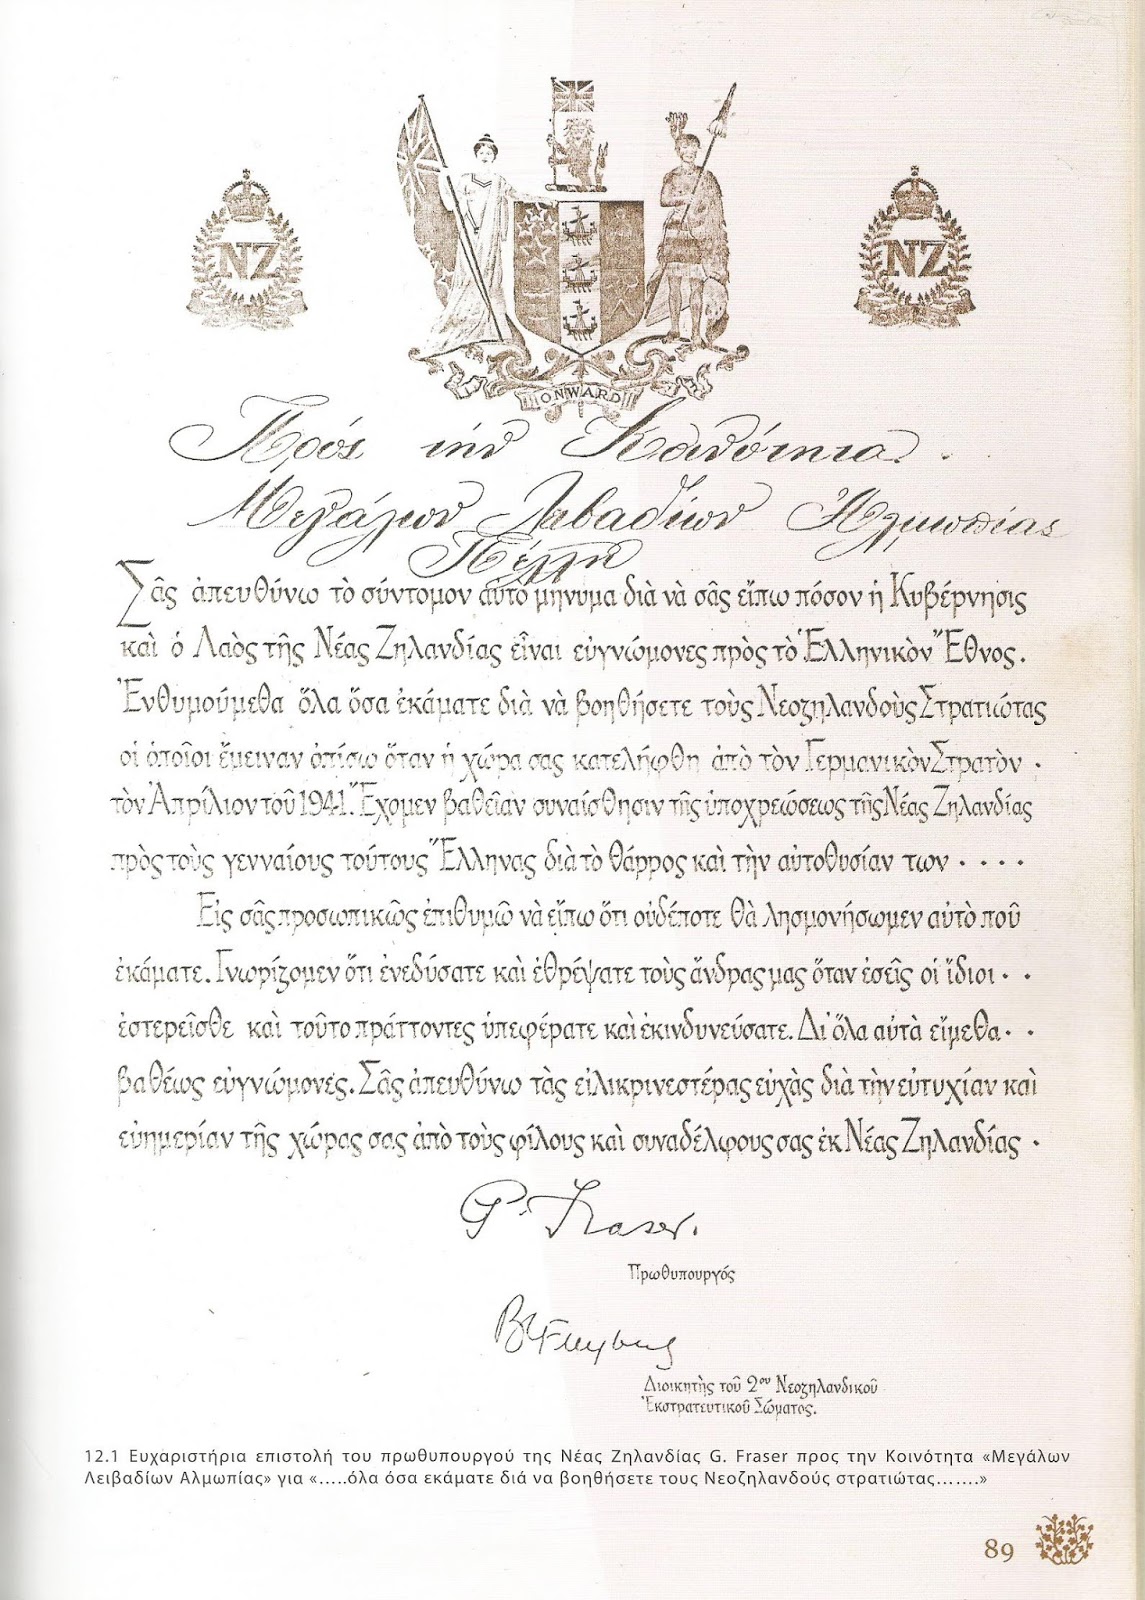 NZ
NZ
ONWARD
Πρός τήν Κοινότητα
Μεγάλων Λειβαδίων Ἀλμωπίας
Πέλλη
Σᾶς ἀπευθύνω τὸ σύντομον αὐτὸ μήνυμα διὰ νὰ σᾶς εἴπω πόσον ἡ Κυβέρνησις
καὶ ὁ Λαὸς τῆς Νέας Ζηλανδίας εἶναι εὐγνώμονες πρὸς τὸ Ἑλληνικὸν Ἔθνος.
Ἐνθυμούμεθα ὅλα ὅσα ἐκάματε διὰ νὰ βοηθήσετε τοὺς Νεοζηλανδοὺς Στρατιώτας
οἱ ὁποῖοι ἔμειναν ὀπίσω ὅταν ἡ χώρα σας κατελήφθη ἀπὸ τὸν Γερμανικὸν Στρατὸν .
τὸν Ἀπρίλιον τοῦ 1941. Ἔχομεν βαθεῖαν συναίσθησιν τῆς ὑποχρεώσεως τῆς Νέας Ζηλανδίας
πρὸς τοὺς γενναίους τούτους Ἕλληνας διὰ τὸ θάρρος καὶ τὴν αὐτοθυσίαν των . . . .
Εἰς σᾶς προσωπικῶς ἐπιθυμῶ νὰ εἴπω ὅτι οὐδέποτε θὰ λησμονήσωμεν αὐτὸ ποῦ
ἐκάματε. Γνωρίζομεν ὅτι ἐνεδύσατε καὶ ἐθρέψατε τοὺς ἄνδρας μας ὅταν ἐσεῖς οἱ ἴδιοι . .
ἐστερεῖσθε καὶ τοῦτο πράττοντες ὑπεφέρατε καὶ ἐκινδυνεύσατε. Δι ὅλα αὐτὰ εἴμεθα . .
βαθέως εὐγνώμονες. Σᾶς ἀπευθύνω τὰς εἰλικρινεστέρας εὐχὰς διὰ τὴν εὐτυχίαν καὶ
εὐημερίαν τῆς χώρας σας ἀπὸ τοὺς φίλους καὶ συναδέλφους σας ἐκ Νέας Ζηλανδίας .
P. Fraser.
Πρωθυπουργός
B C Freyberg
Διοικητὴς τοῦ 2ου Νεοζηλανδικοῦ
Ἐκστρατευτικοῦ Σώματος.
12.1 Ευχαριστήρια επιστολή του πρωθυπουργού της Νέας Ζηλανδίας G. Fraser προς την Κοινότητα «Μεγάλων
Λειβαδίων Αλμωπίας» για «.....όλα όσα εκάματε διά να βοηθήσετε τους Νεοζηλανδούς στρατιώτας.......»
89